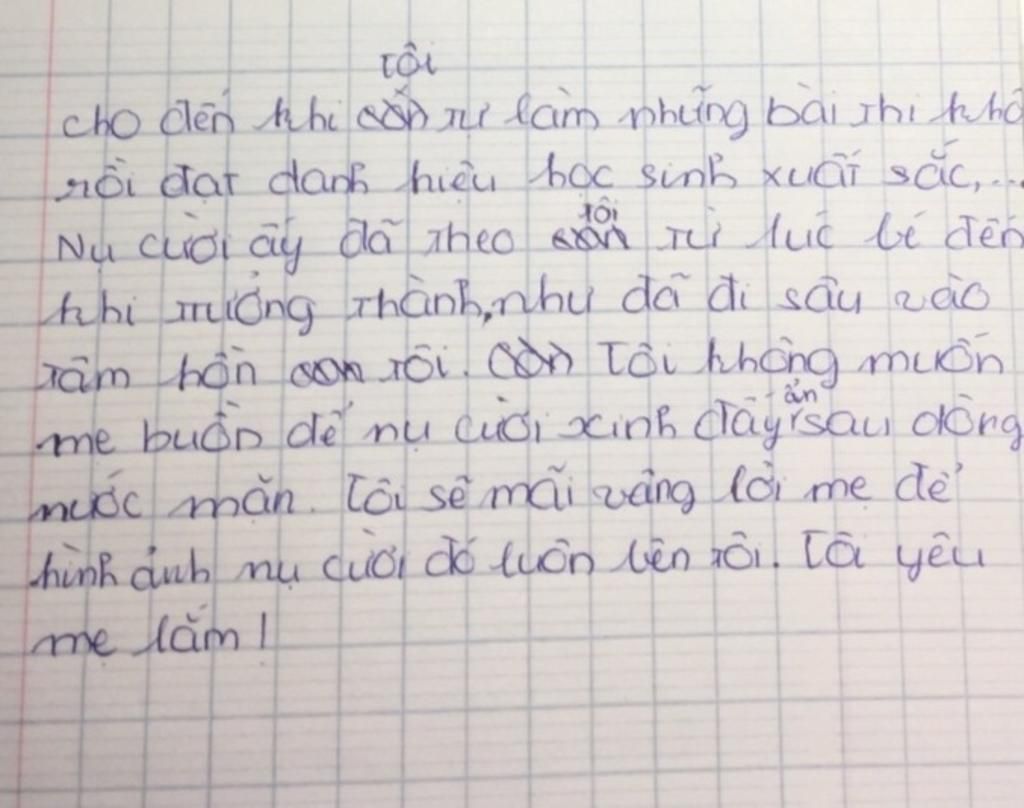 cho đến khi tôi tự làm những bài thi khó
rồi đạt danh hiệu học sinh xuất sắc,...
Nụ cười ấy đã theo tôi từ lúc bé đến
khi trưởng thành, như đã đi sâu vào
tâm hồn tôi. Tôi không muốn
mẹ buồn để nụ cười xinh đấy ẩn sau dòng
nước mặn. Tôi sẽ mãi vâng lời mẹ để
hình ảnh nụ cười đó luôn bên tôi. Tôi yêu
mẹ lắm!